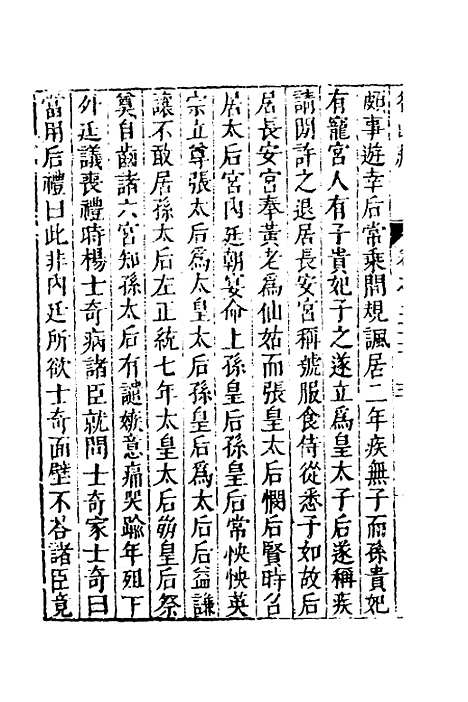 頗事遊幸后常乘間規諷居二年疾無子而孫貴妃
有寵宮人有子貴妃子之遂立爲皇太子后遂稱疾
請閒許之退居長安宮稱號服食侍從悉予如故后
居長安宮奉黃老爲仙姑而張皇太后憫后賢時召
居太后宮內廷朝宴命上孫皇后孫皇后常怏怏英
宗立尊張太后爲太皇太后孫皇后爲太后后益謙
讓不敢居孫太后左正統七年太皇太后崩皇后祭
奠自齒諸六宮知孫太后有譴嫉意痛哭踰年殂下
外廷議喪禮時楊士奇病諸臣就問士奇家士奇曰
當用后禮曰此非內廷所欲士奇面壁不荅諸臣竟